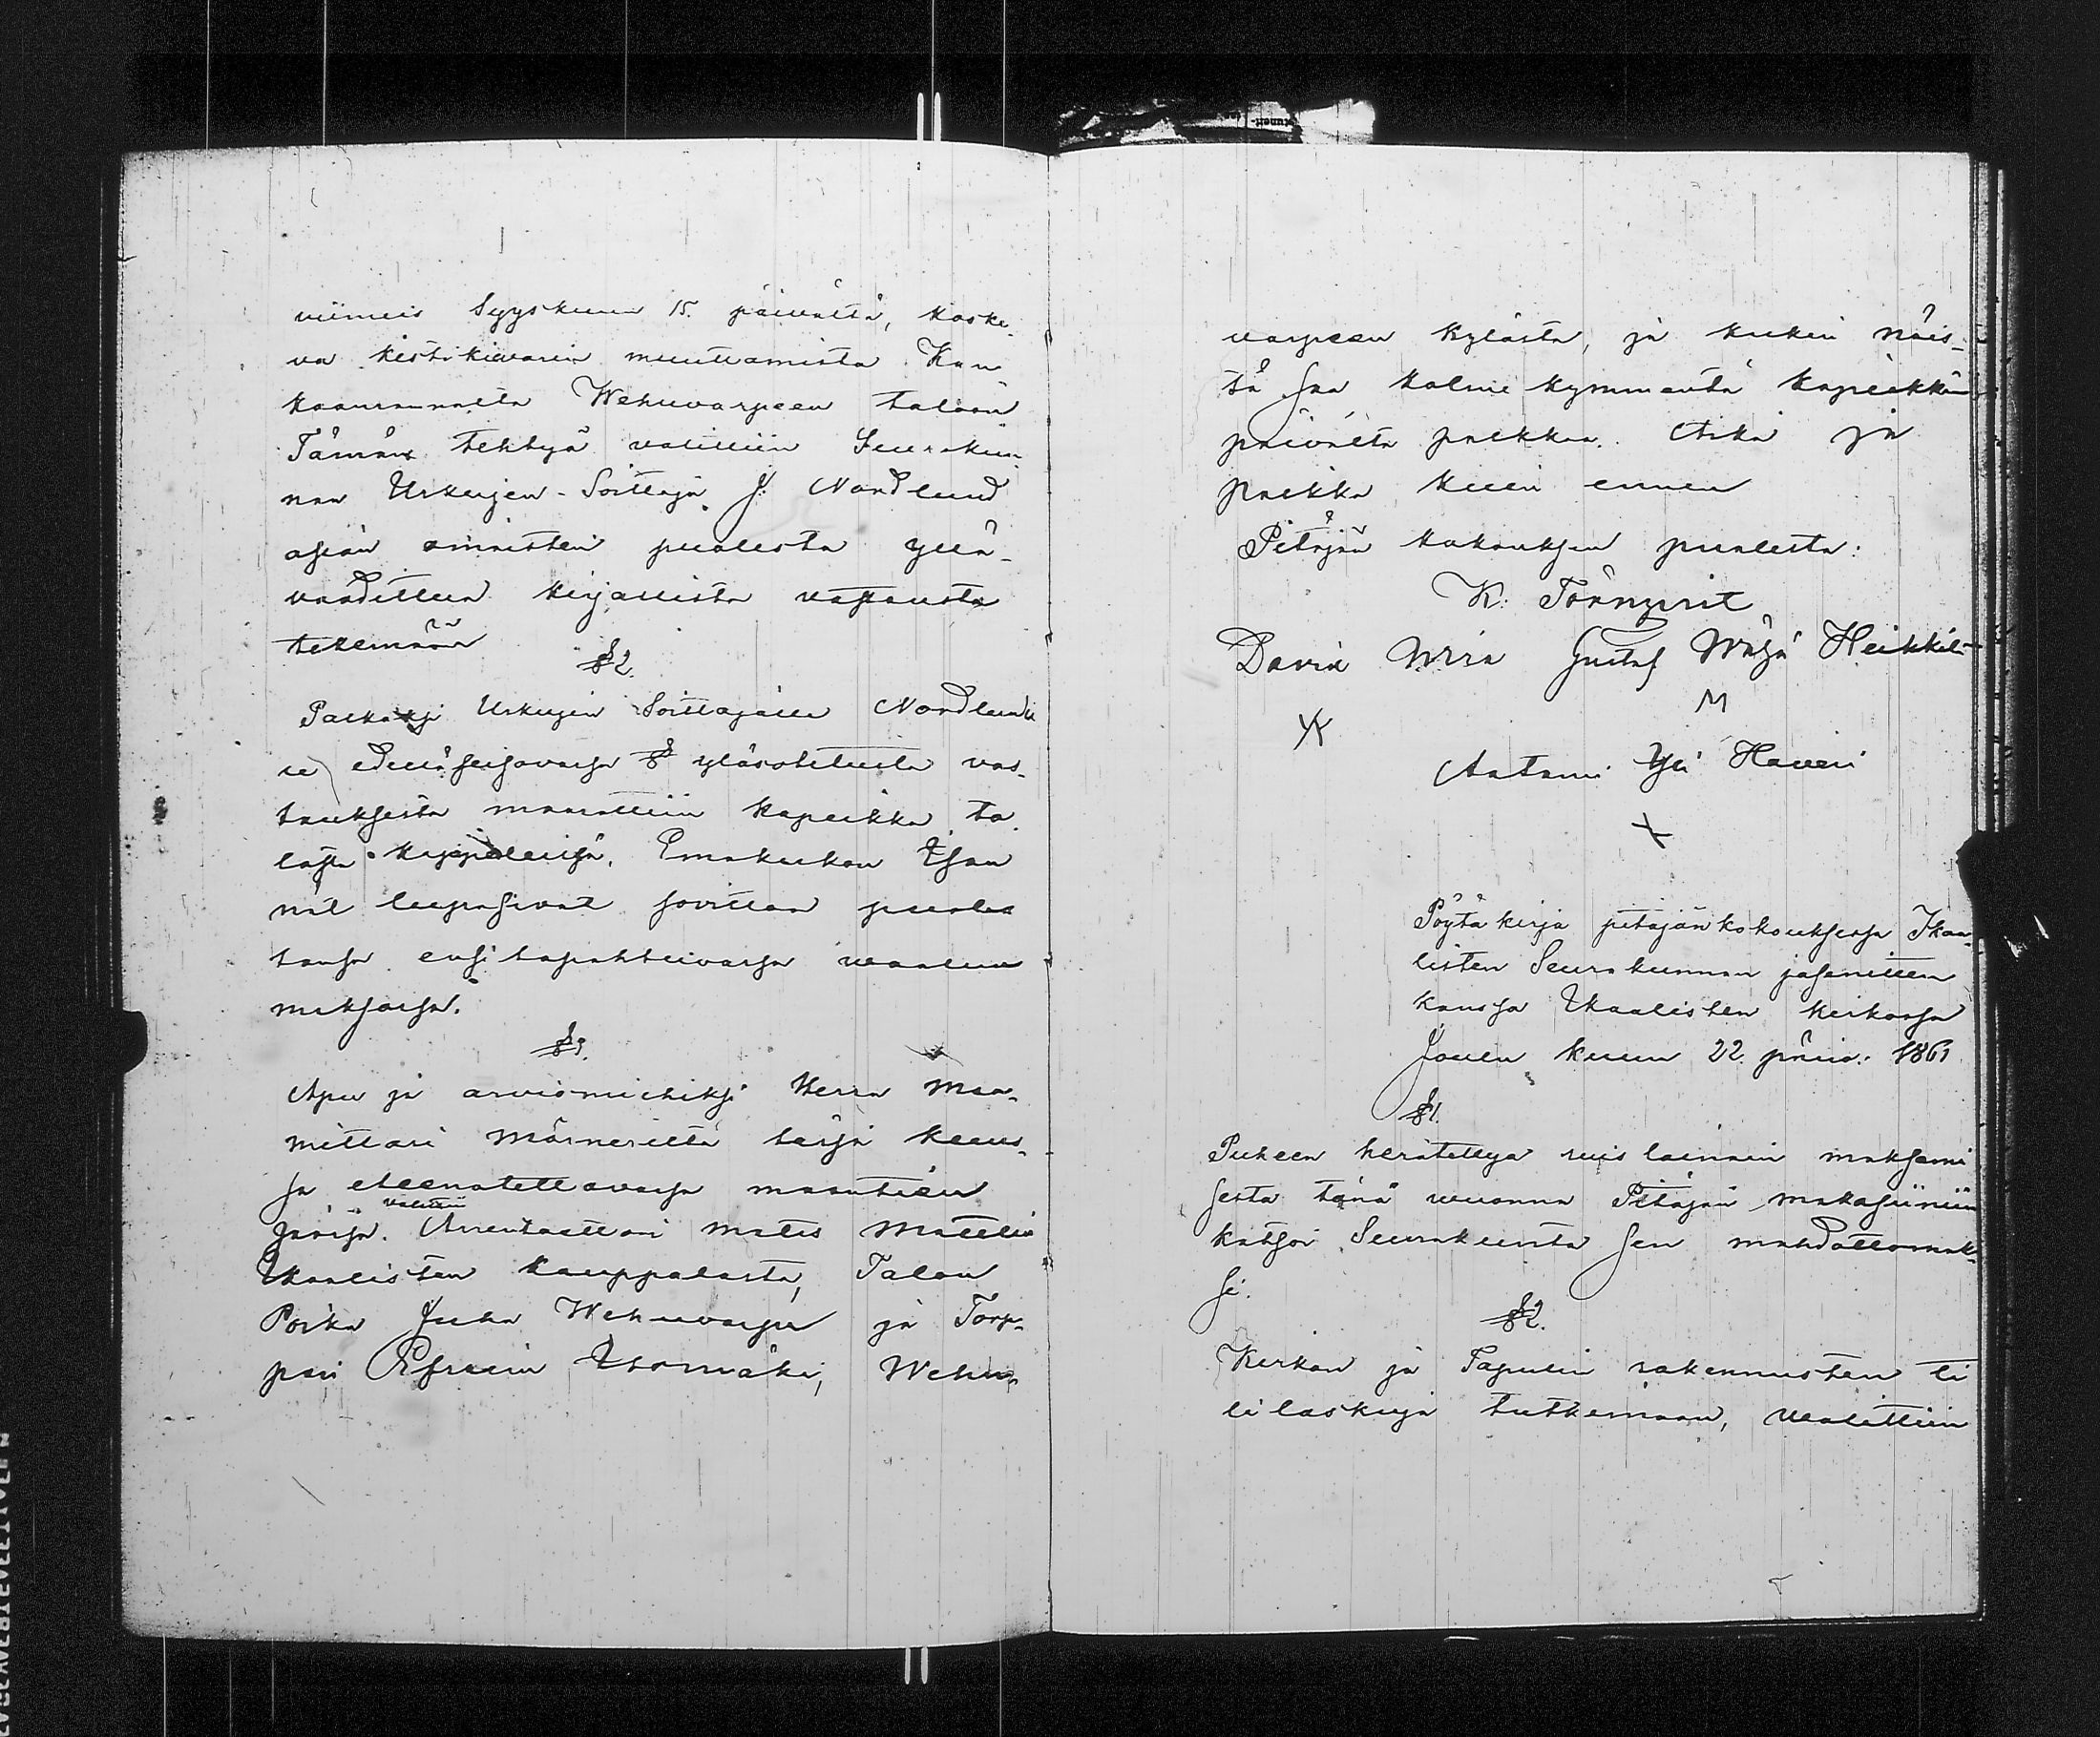 viimeis Syyskuun 15. päivältä, koske-
va kestikievarin muuttamista Kan
kaanrannalta Wehuvarpeen taloon
Tämän tehtyä valittiin Seurakun-
nan Urkujen-Soittaja J: Nordlund
asian omaisten puolesta yllä-
vaaditun kirjallista vastausta
tekemään
§2.
Palkaksi Urkujen Soittajalle Nordlundi
lle edelläseisovassa § ylösotetusta vas-
tauksesta maarattiin kapeikka ta-
losta kappelissa, Emäkirkon Isän
nät lupasivat sovittaa puoles
tansa ensi tapahtuvassa vaalin
maksossa.
§3.
Apu ja arviomieheksi Herra Maa-
mittari Mörneriltä tässä kuus-
sa eteenotettavassa maantien
jaossa. valittiin Arrentaattori Mats Mattelin
Ikaalisten kauppalasta, Talon
Poika Juha Wehuvarpee ja Torp-
pari Efraim Isomäki, Wehu-
varpeen kylästä, ja kukin näis-
tä saa kolme kymmentä kapeikkaa
päivältä palkkaa. Aika ja
paikka kuin ennen
Pitäjän kokouksen puolesta:
K: Törnqvist
David Gustaf Heikkilä
Antami Yli Haveri
Pöytäkirja pitäjänkokouksessa Ikaa-
listen Seurakunnan jäsenitten
kanssa Ikaalisten kirkossa
Joulu kuun 22 päiv: 1861
§1.
Puheen herätettyä ruis lainain maksami
sesta tänä vuonna Pitäjän makasiiniin
katsoi Seurakunta sen mahdottomak-
si.
§2.
Kirkon ja Tapulin rakennusten ti
li laskuja tutkimaan, valittiin